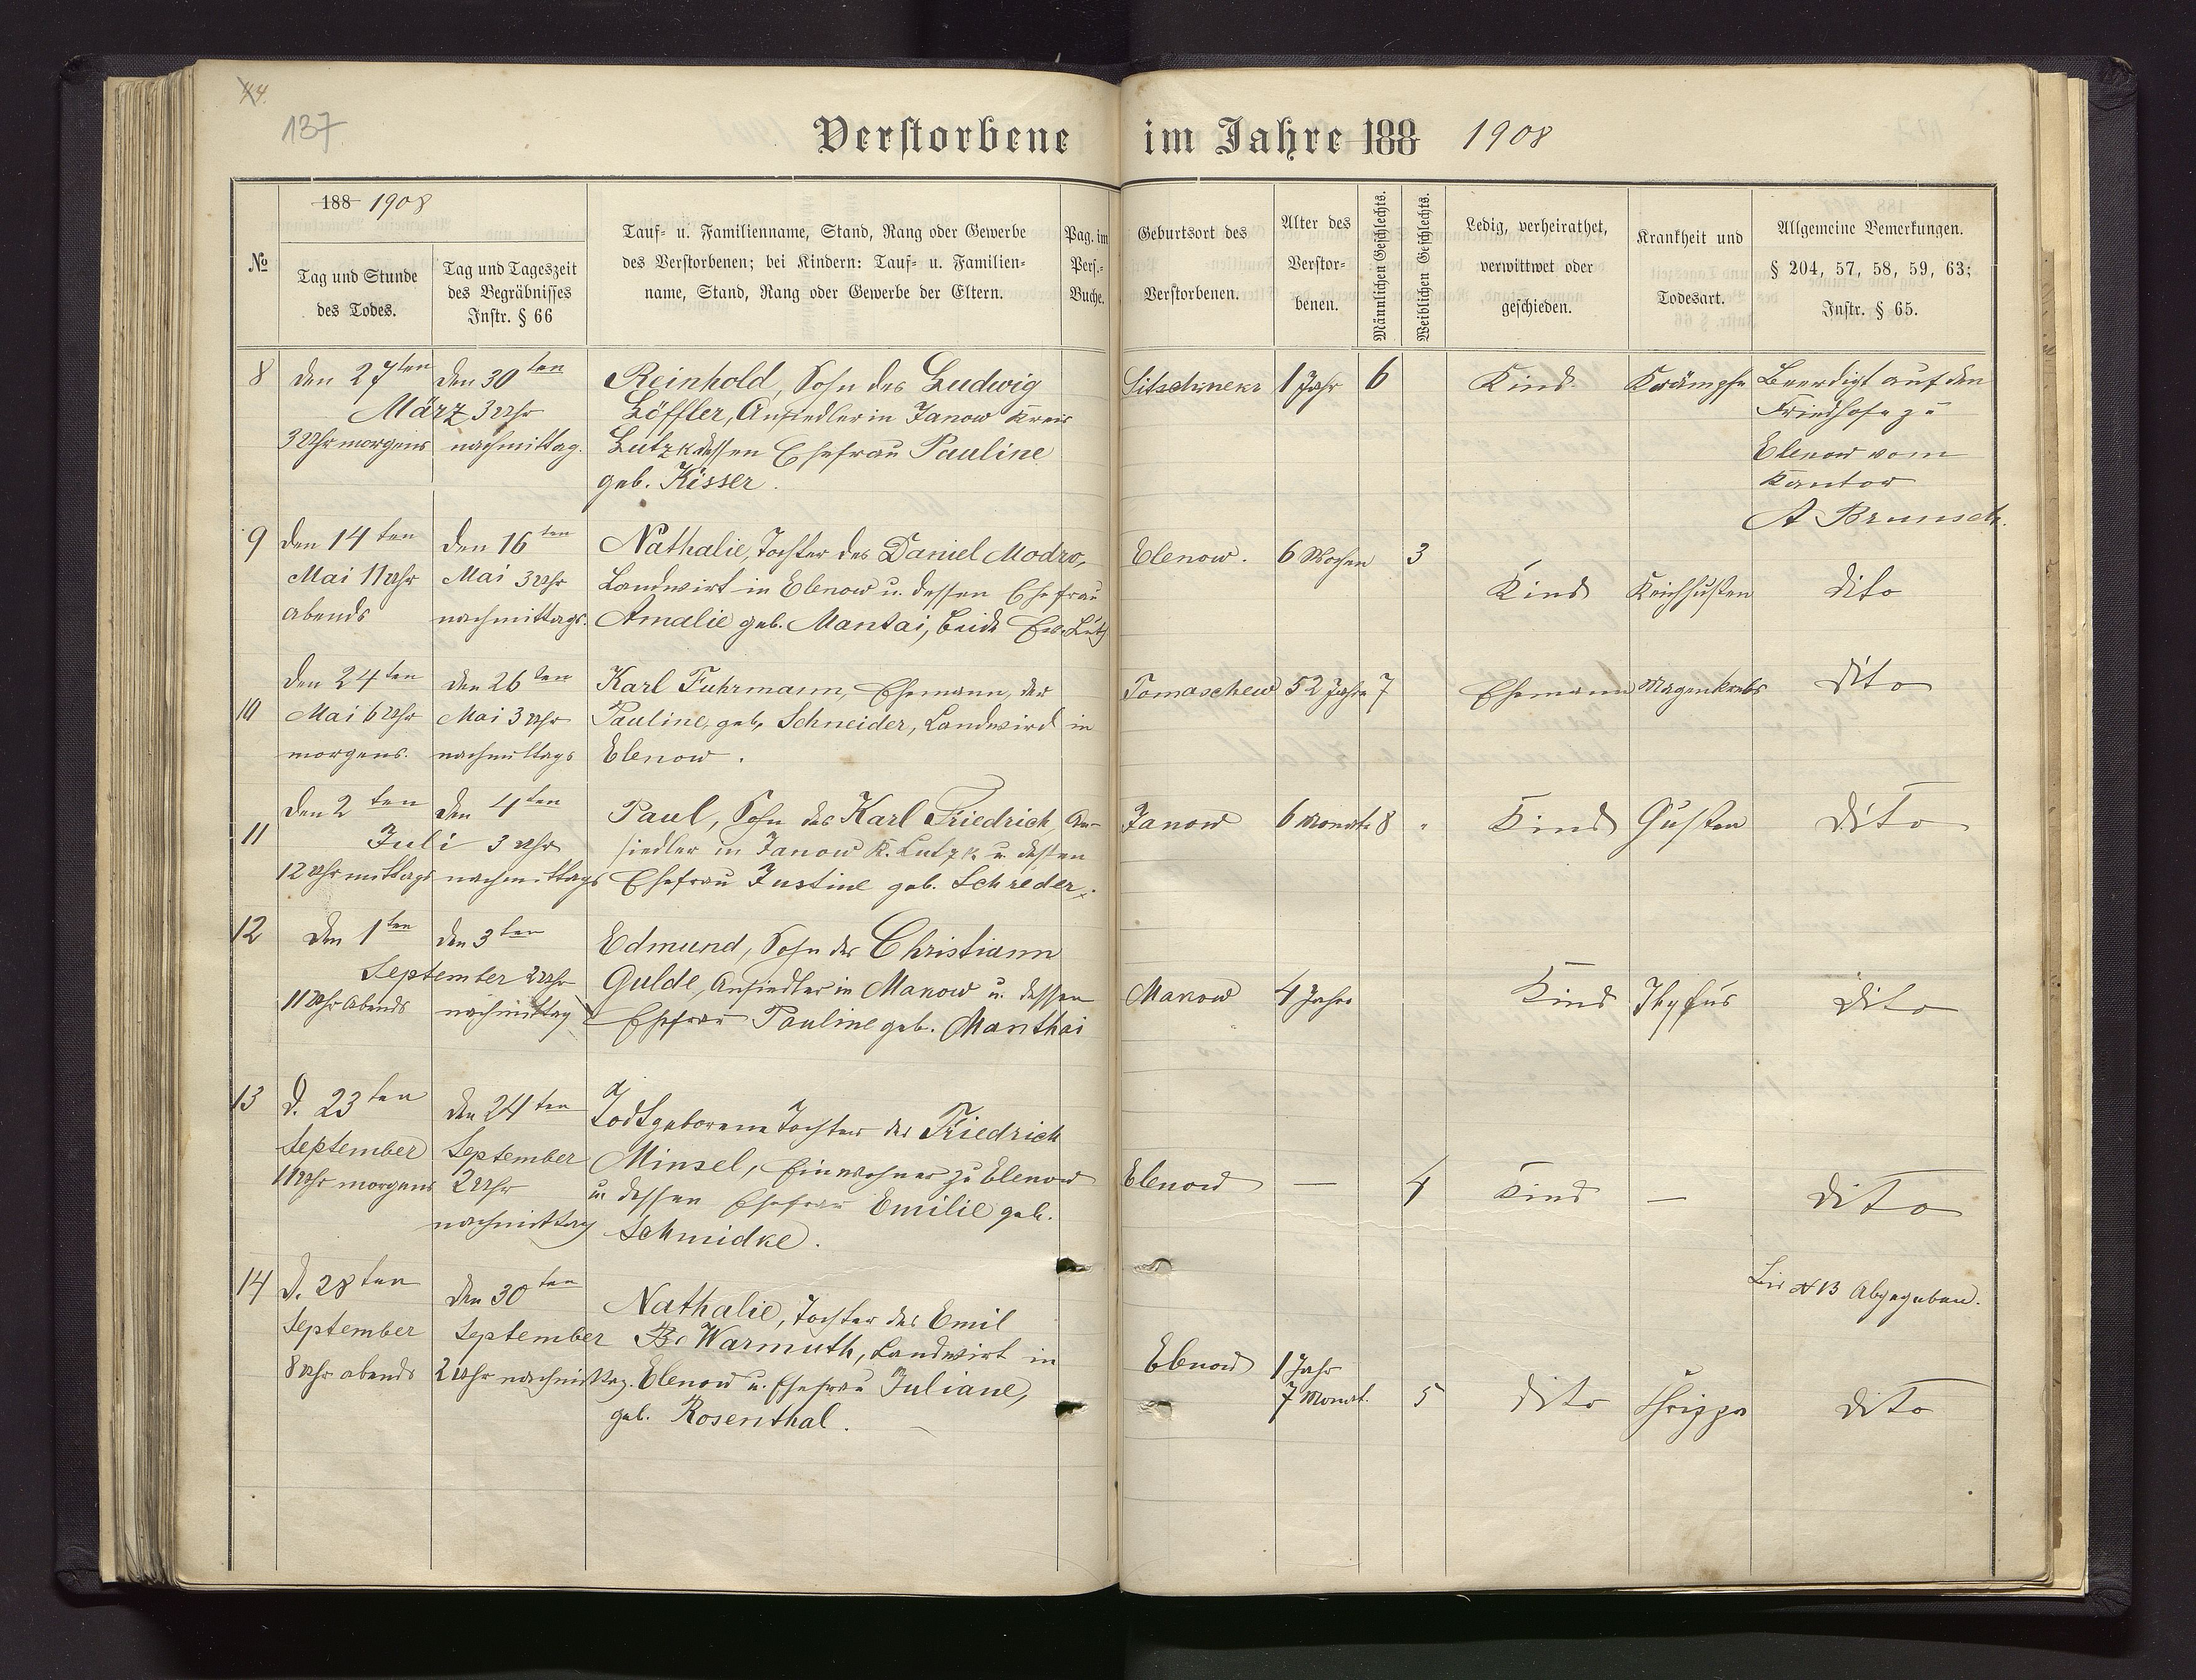 137
Verstorbene im Jahre 188 1908
№
188 1908
Tag und Stunde
des Todes.
Tag und Tageszeit
des Begräbnisses
Instr. § 66
Tauf- u. Familienname, Stand, Rang oder Gewerbe
des Verstorbenen; bei Kindern: Tauf- u. Familien-
name, Stand, Rang oder Gewerbe der Eltern.
Pag. im
Pers.-
Buche.
Geburtsort des
Verstorbenen.
Alter des
Verstor-
benen.
Männlichen Geschlechts.
Weiblichen Geschlechts.
Ledig, verheirathet,
verwittwet oder
geschieden.
Krankheit und
Todesart.
Allgemeine Bemerkungen.
§ 204, 57, 58, 59, 63;
Instr. § 65.
8
den 27ten
März
3 Uhr morgens
den 30ten
3 Uhr
nachmittag.
Reinhold, Sohn des Ludwig
Löffler, Ansiedler in Janow Kreis
Lutzk dessen Ehefrau Pauline
geb. Kisser.
1 Jahr
6
Kind
Krämpfe
Beerdigt auf den
Friedhofe zu
Elenow vom
Kantor
A Brunsch.
9
den 14ten
Mai 11 Uhr
abends
den 16ten
Mai 3 Uhr
nachmittags.
Nathalie, Tochter des Daniel Modro,
Landwirt in Elenow u. dessen Ehefrau
Amalie geb. Mantai, beide Ev. Luth
Elenow.
6 Wochen
3
Kind
Keichhusten
dito
10
den 24ten
Mai 6 Uhr
morgens.
den 26ten
Mai 3 Uhr
nachmittags
Karl Fuhrmann, Ehemann, der
Pauline, geb. Schneider, Landwird in
Elenow.
Tomaschew
52 Jahre
7
Ehemann
Magenkrebs
dito
11
den 2ten
Juli
12 Uhr mittags
den 4ten
3 Uhr
nachmittags
Paul, Sohn des Karl Friedrich, An-
siedler in Janow K. Lutzk u. dessen
Ehefrau Justine geb. Schreder.
Janow
6 Monate
8
Kind
Husten
dito
12
den 1ten
September
11 Uhr Abends
den 3ten
2 Uhr
nachmittag
Edmund, Sohn des Christiann
Gulde, Ansiedler in Manow u. dessen
Ehefrau Pauline geb. Manthai
Manow
4 Jahre
Kind
Thyfus
dito
13
d. 23ten
September
11 Uhr morgens
den 24ten
September
2 Uhr
nachmittag
Todtgeborene Tochter des Friedrich
Minsel, Einwohner zu Elenow
u. dessen Ehefrau Emilie geb.
Schmidke.
Elenow
—
4
Kind
—
dito
Bis № 13 Abgegeben.
14
d. 28ten
September
8 Uhr abends
den 30ten
September
2 Uhr nachmittag.
Nathalie, Tochter des Emil
Warmuth, Landwirt in
Elenow u. Ehefrau Juliane,
geb. Rosenthal.
Elenow
1 Jahr
7 Monat.
5
dito
dito